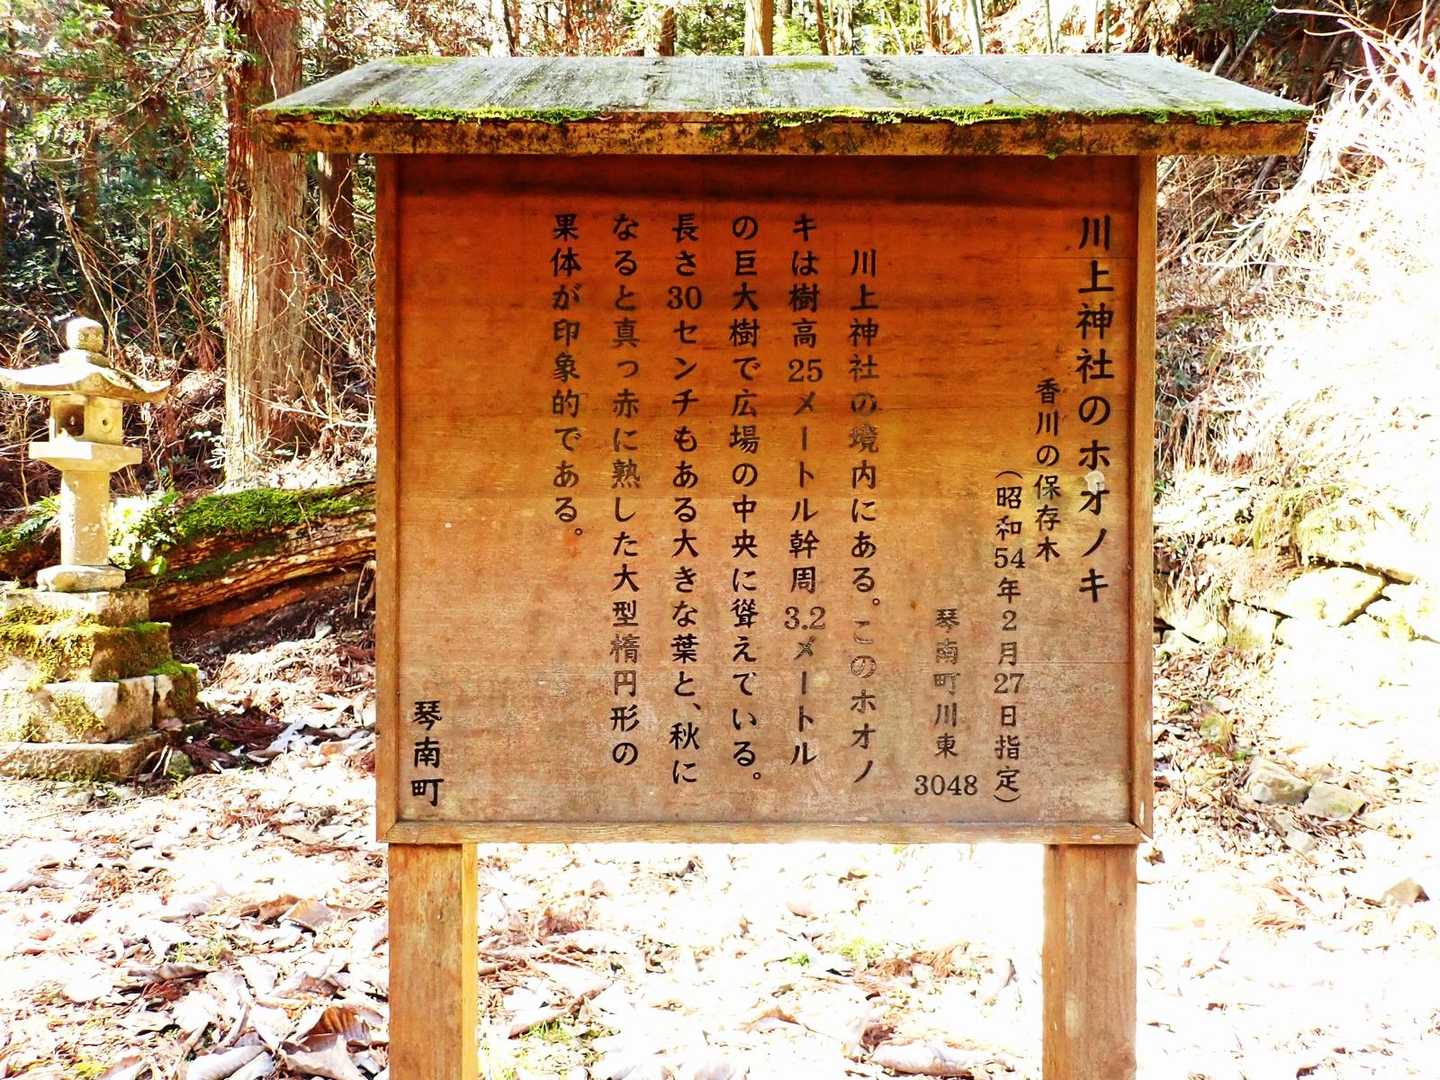 川上神社のホオノキ
香川の保存木
(昭和54年2月27日指定)
琴南町川東3048
川上神社の境内にある。このホオノ
キは樹高25メートル幹周3.2メートル
の巨大樹で広場の中央に聳えている。
長さ30センチもある大きな葉と、秋に
なると真っ赤に熟した大型楕円形の
果体が印象的である。
琴南町